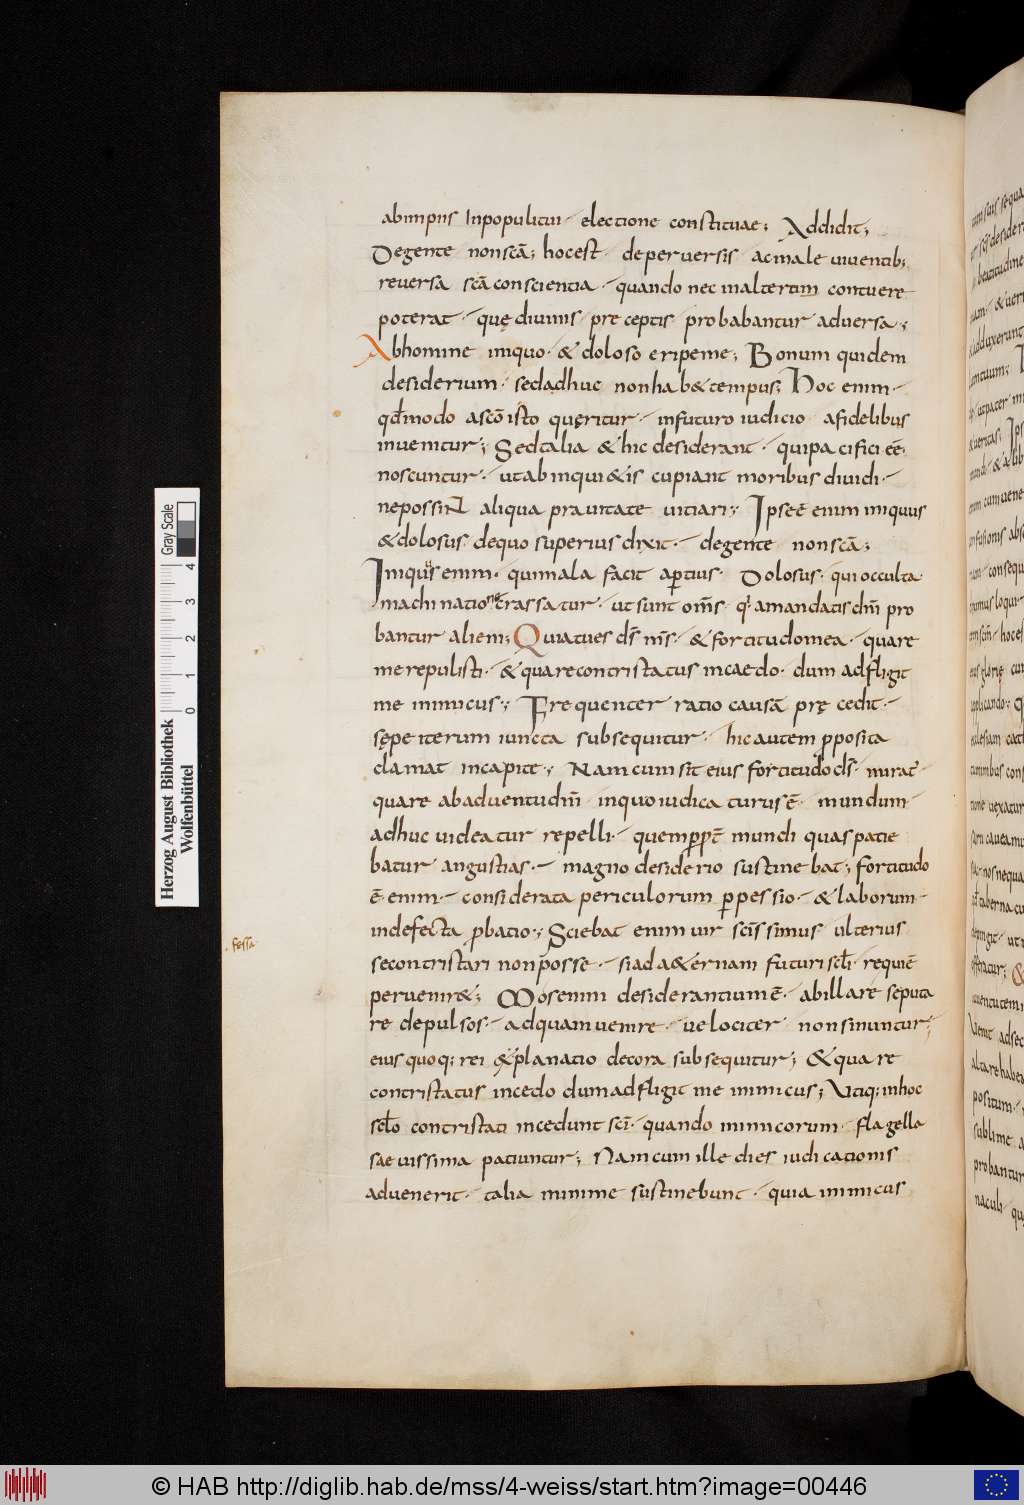 ab impiis In populi tui · electione constituae; Addidit;
De gente non scā; hoc est · de perversis ac male viventib;
reversa scā conscientia · quando nec in alterum continere
poterat · quę divinis preceptis probabantur adversa ·;
Ab homine iniquo · & doloso eripe me; Bonum quidem
desiderium · sed adhuc non hab& tempus; Hoc enim ·
qđmodo a scō isto quęritur · in futuro iudicio a fidelibus
invenitur; Sed talia & hic desiderant · qui pacifici eē
noscuntur · ut ab inqui&is cupiant moribus dividi ·
ne possiNT aliqua pravitate vitiari; Ipse ē enim iniquus
& dolosus · de quo superius dixit · de gente non scā;
Iniquus enim · qui mala facit aptius · Dolosus · qui occulta
machinatione crassatur · ut sunt om̄s q· a mandatis dn̄i pro
bantur alieni; Quia tu es ds̄ ms̄ · & fortitudo mea · quare
me repulisti · & quare contristatus incaedo · dum adfligit
me inimicus ·; Frequenter ratio causā prę cedit ·
sępe iterum iuncta subsequitur · hic autem pposita
clamat in capite ·; Nam cum sit eius fortitudo ds̄ · mirat
quare ab adventu dn̄i · in quo iudicaturus ē · mundum
adhuc videatur repelli · quem ppt̄ mundi quas patie
batur angustias · magno desiderio sustinebat; fortitudo
ē enim · considerata periculorum ppessio · & laborum
indefecta pbatio ·; Sciebat enim vir scīssimus · ulterius
se contristari non posse · si ad a&ernam futuri scl̄i · requiē
perveniR&; Mos enim desiderantium ē · ab illa re se puta
re depulsos · ad quam venire · velociter non sinuntur;
eius quoq; rei explanatio decora subsequitur; & quare
contristatus incedo dum adfligit me inimicus; Utiq; in hoc
scl̄o contristati incedunt scī · quando inimicorum · flagella
saevissima patiuntur; Nam cum ille dies iudicationis
advenerit · talia minime sustinebunt · quia inimicus
Herzog August Bibliothek
Wolfenbüttel
Gray Scale
0 1 2 3 4
© HAB http://diglib.hab.de/mss/4-weiss/start.htm?image=00446